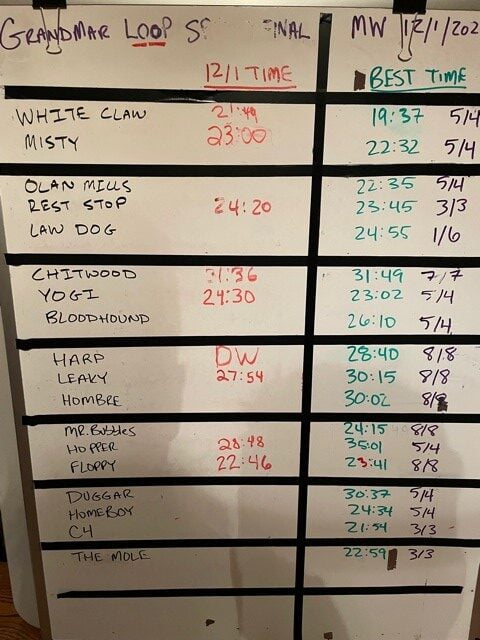 GRANDMAR LOOP MW 12/1/202
12/1 TIME BEST TIME
WHITE CLAW 21:49 19:37 5/4
MISTY 23:00 22:32 5/4
OLAN MILLS 22:35 5/4
REST STOP 24:20 23:45 3/3
LAW DOG 24:55 1/6
CHITWOOD 31:36 31:49 7/7
YOGI 24:30 23:02 5/4
BLOODHOUND 26:10 5/4
HARP DW 28:40 8/8
LEAKY 27:54 30:15 8/8
HOMBRE 30:02 8/8
MR. BUBBLES 24:15 8/8
HOPPER 28:48 35:01 5/4
FLOPPY 22:46 23:41 8/8
DUGGAR 30:37 5/4
HOMEBOY 24:34 5/4
C4 21:54 3/3
THE MOLE 22:59 3/3